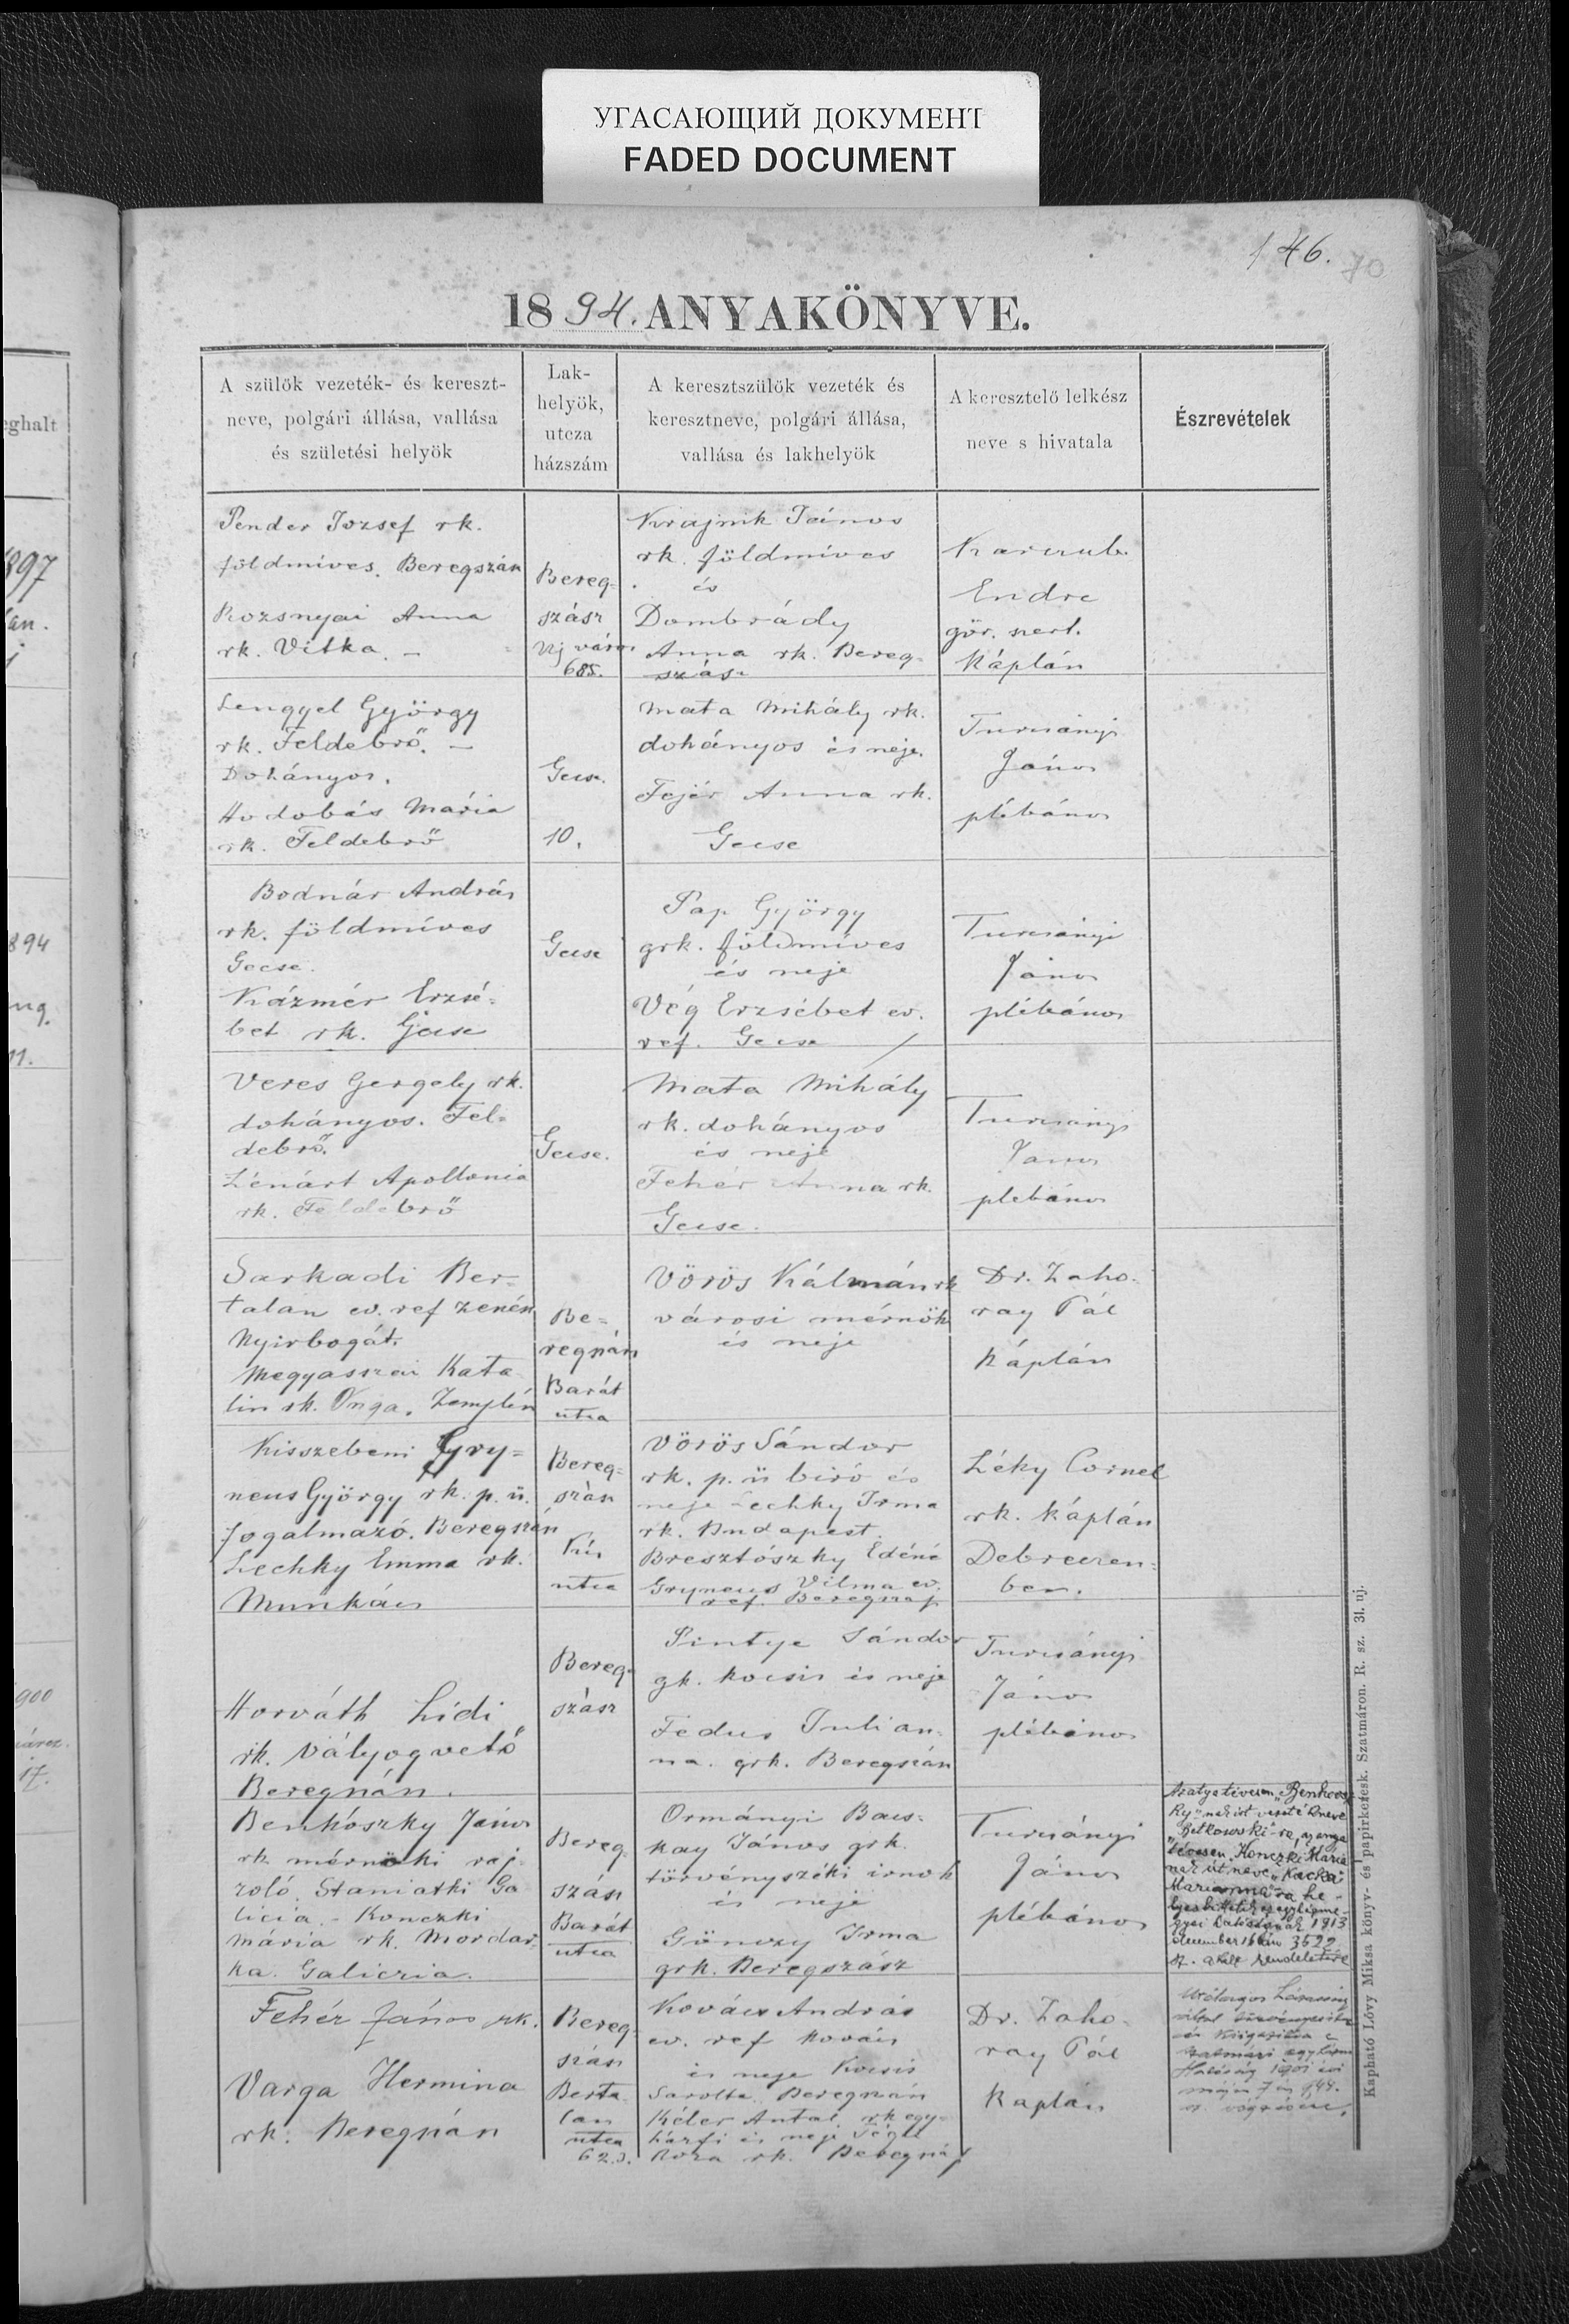 УГАСАЮЩИЙ ДОКУМЕНТ
FADED DOCUMENT
146.
70
1894. ANYAKÖNYVE.
eghalt
1897
894
900
17.
A szülök vezeték- és kereszt-
neve, polgári állása, vallása
és születési helyök
Lak-
helyök,
utcza
házszám
A keresztszülök vezeték és
keresztneve, polgári állása,
vallása és lakhelyök
A keresztelő lelkész
neve s hivatala
Észrevételek
Pender Jozsef rk.
földmíves. Beregszász
Rozsnyai Anna
rk. Vitka –
Bereg-
szász
Uj város
685.
Krajnik János
rk. földmíves
és
Dombrády
Anna rk. Bereg-
szász
Endre
gör. szert.
Káplán
Lengyel György
rk. Feldebrő. –
Dohányos.
Hodobás Mária
rk. Feldebrő
Gecse.
10.
Mata Mihály rk.
dohányos és neje.
Fejér Anna rk.
Gecse
Turcsányi
János
plébános
Bodnár András
rk. földmíves
Gecse.
Kázmér Erzsé-
bet rk. Gecse
Gecse
Pap György
grk. földmíves
és neje
Vég Erzsébet ev.
ref. Gecse
Turcsányi
János
plébános
Veres Gergely rk.
dohányos. Fel-
debrő.
Lénárt Apollonia
rk. Feldebrő
Gecse.
Mata Mihály
rk. dohányos
és neje
Fehér Anna rk.
Gecse.
Turcsányi
János
plebános
Sarkadi Ber-
talan ev. ref zenész
Nyirbogát.
Megyasszai Kata-
lin rk. Onga. Zemplén
Be-
regszász
Barát
utca
Vörös Kálmán rk
városi mérnök
és neje
Dr. Zaho-
ray Pál
Káplán
Kisszebeni Gry-
neus György rk. p. ü.
fogalmazó. Beregszász
Lechky Emma rk.
Munkács
Bereg-
szász
utca
Vörös Sándor
rk. p. ü biró és
neje Lechky Irma
rk. Budapest.
Bresztószky Edéné
Gryneus Vilma ev.
ref. Beregszász
Léky Cornel
rk. káplán
Debreczen-
ben.
Horváth Lidi
rk. vályogvető
Beregszász.
Bereg-
szász
Pintye Sándor
gk. kocsis és neje
Fedus Julian-
na. grk. Beregszász
Turcsányi
János
plébános
Benkószky János
rk mérnöki raj-
zoló. Staniatki Ga
licia. – Konczki
Mária rk. Mordar-
ka. Galiczia.
Bereg-
szász
Barát
utca
Ormányi Bacs-
kay János grk.
törvényszéki irnok
és neje
Gönczy Irma
grk. Beregszász
Turcsányi
János
plébános
Az atya tévesen „Benkosz-
ky"-nak irt vezetékneve
„Betkowski"-ra, az anya
tévesen „Konczki Mária"
nak irt neve „Kacka
Marianna"-ra he-
lyesbittetik az egyházme-
gyei hatóságnak 1913
december 16 án 3622
sz. a kelt rendeletére
Fehér János rk.
Varga Hermina
rk. Beregszász
Bereg-
szász
Berta-
lan
utca
62.
Kovács András
ev. ref kovács
és neje Kocsis
Sarolta Beregszász
Kéler Antal rk egy-
házfi és neje
Roza rk. Beregszász
Dr. Zaho-
ray Pál
Kaplán
Utólagos házasság
által törvényesitve
szatmári egyházm
Hatóság 1901 évi
május 7 én
sz. végzésére.
Kapható Lővy Miksa könyv- és papirkeresk. Szatmáron. R. sz. 31. uj.